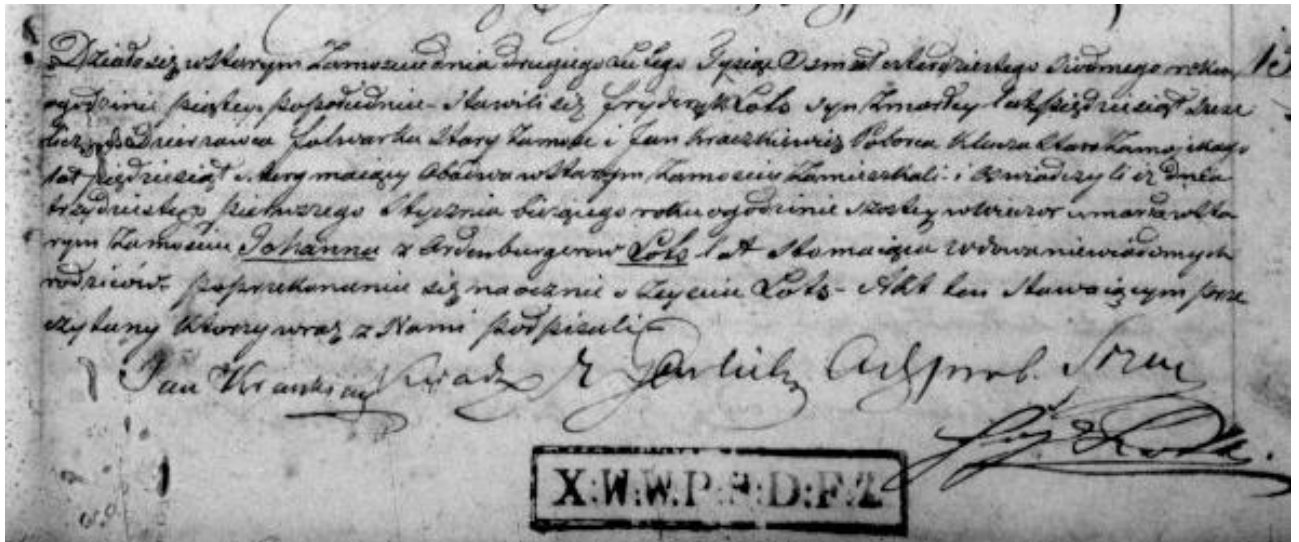 Działo się w Starym Zamościu dnia drugiego Lutego Tysiąc Osmset czterdziestego siodmego roku
o godzinie piątey popołudniu - Stawili się Fryderyk Lots syn Zmarłey lat pięćdziesiąt sześć
liczący Dzierzawca folwarku Stary Zamość i Jan Kraczkiewicz Poborca Klucza Staro Zamoyskiego
lat pięćdziesiąt cztery maiący Obadwa w Starym Zamościu Zamieszkali i Oswiadczyli iż dnia
trzydziestego pierwszego Stycznia bieżącego roku o godzinie szostey w wieczor umarła w Sta
rym Zamościu Johanna z Ardenburgerow Lots lat Sto maiąca wdowa niewiadomych
rodziców. po przekonaniu się naocznie o Zeyściu Lots - Akt ten Stawaiącym prze
czytany Ktorzy wraz z Nami podpisali
Jan Xiądz Adm prob.
X:W:W:P:P:D:F:Z